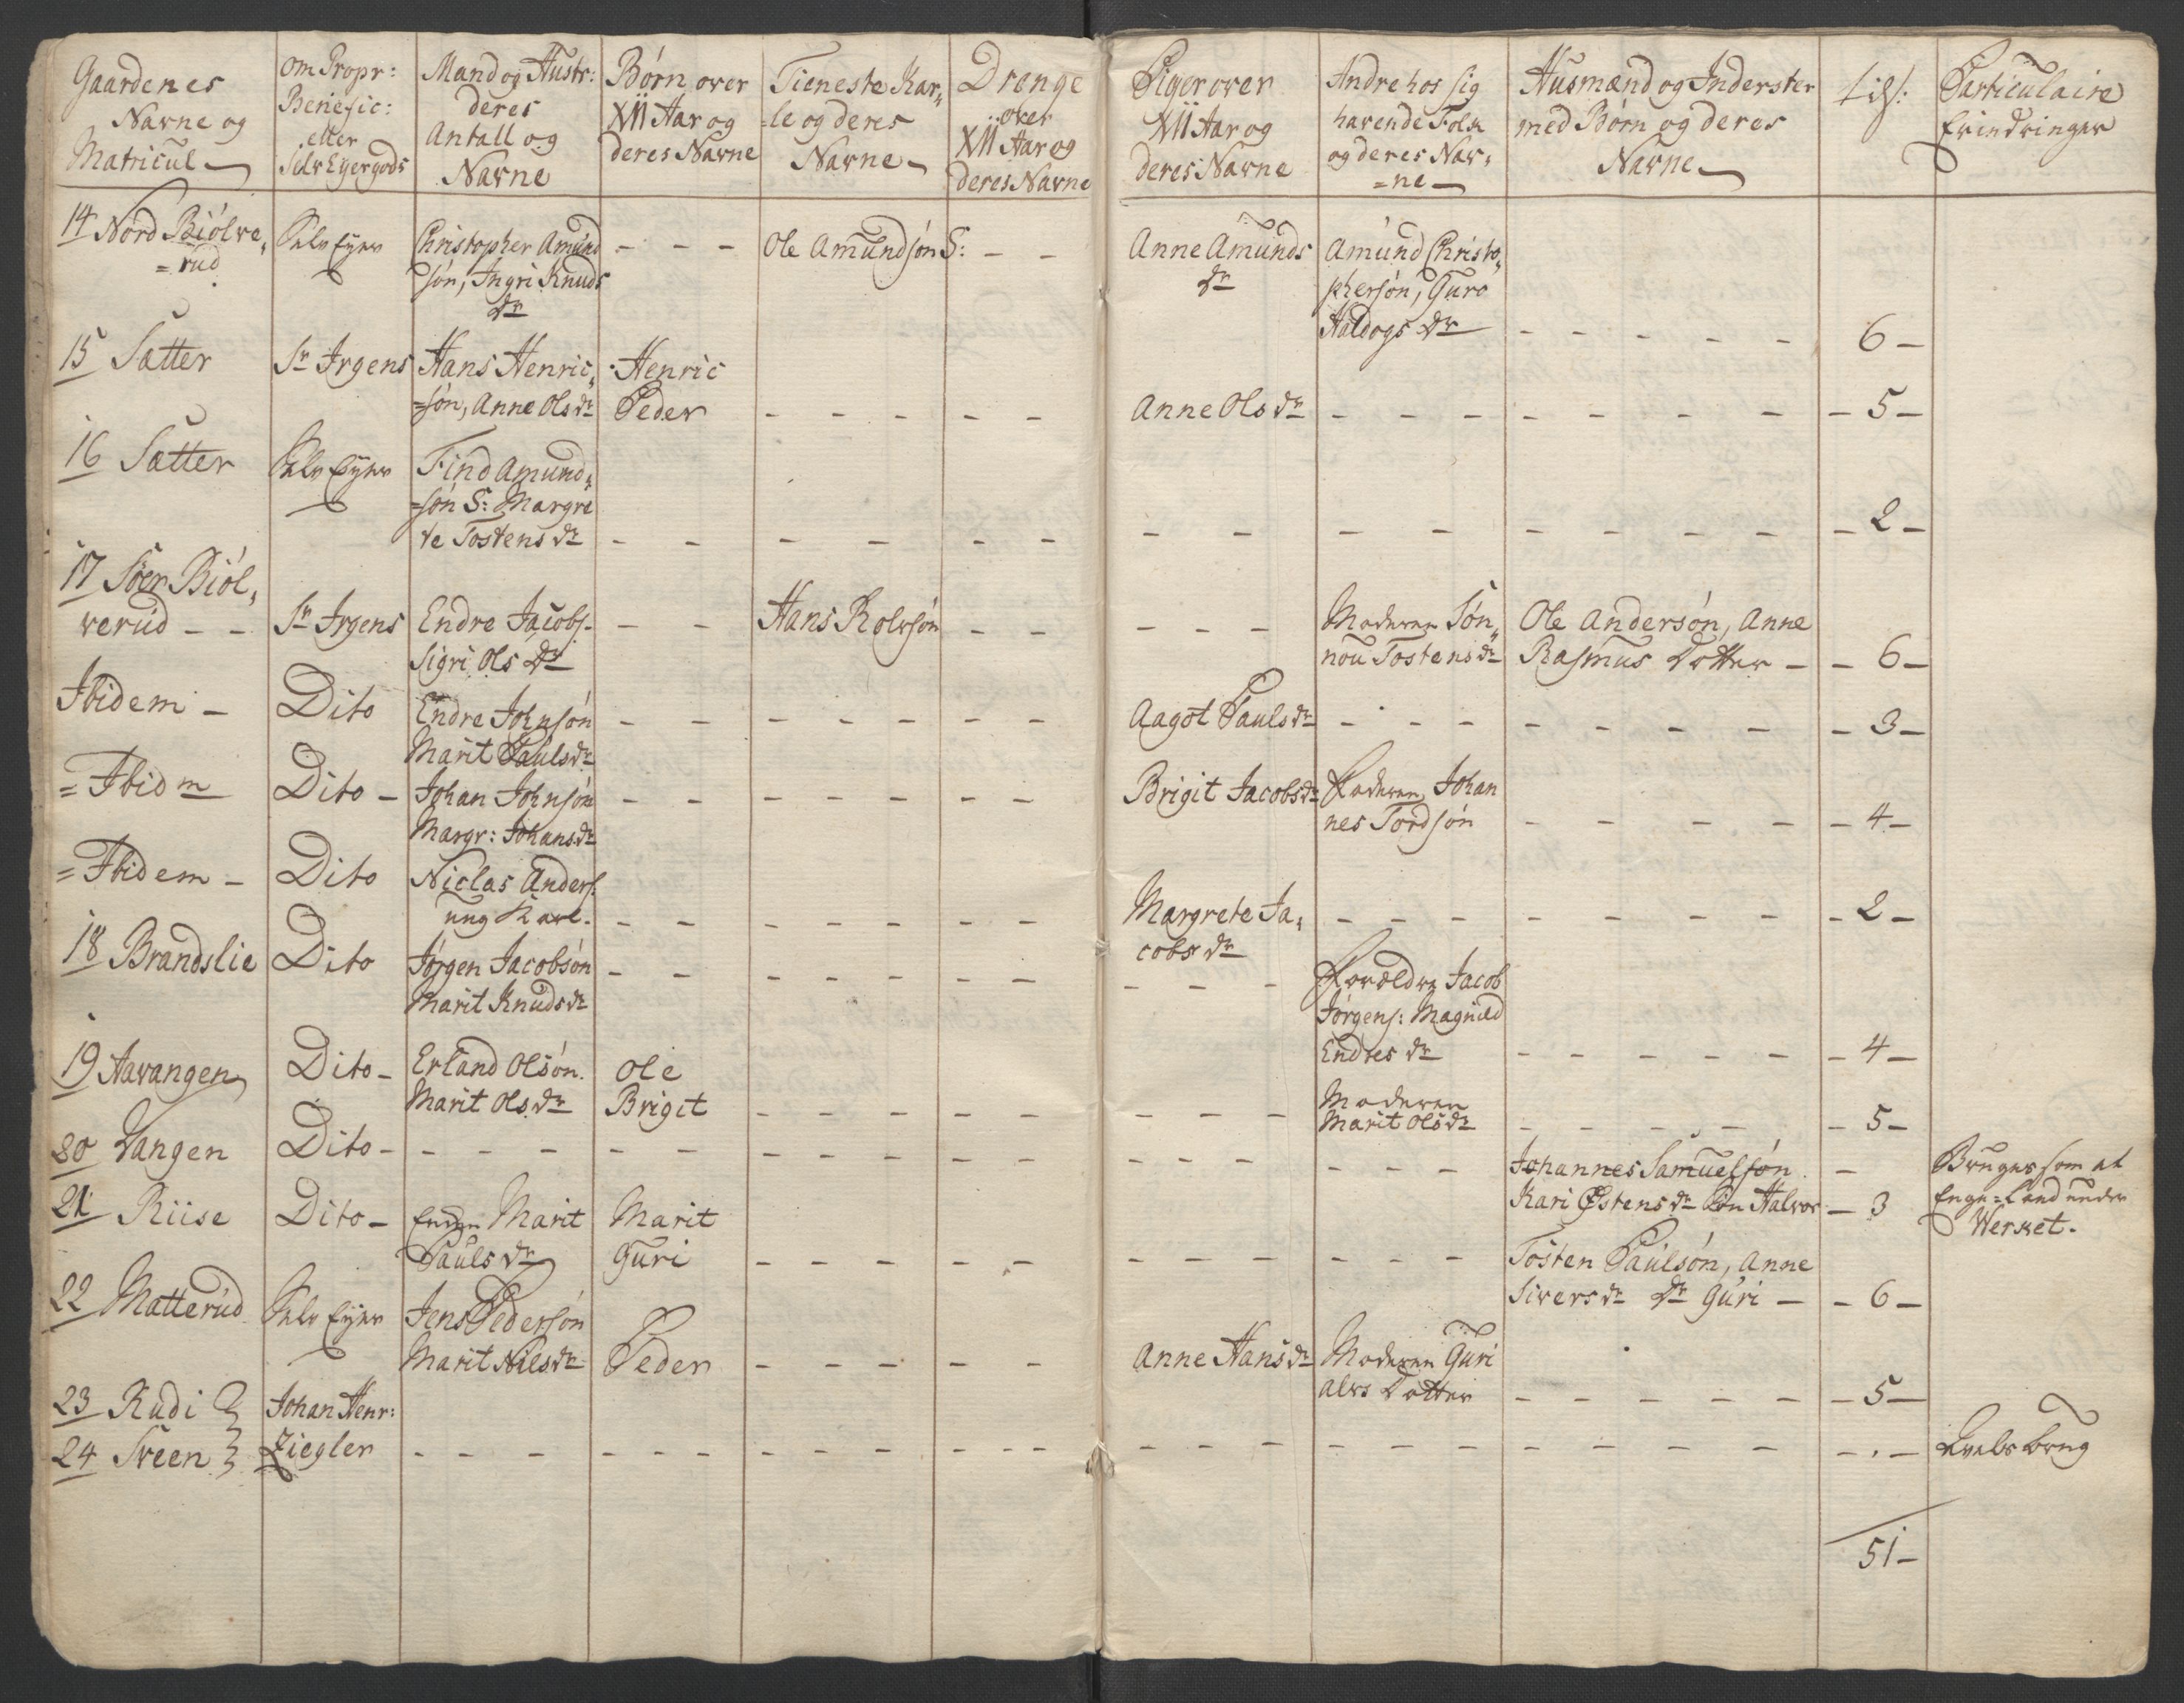 Gaardenes
Navne og
Matricul
om Propr:
Benefic:
eller
SelvEyergods
Mand og Hustr:
deres
Antall og
Navne
Børn over
XII Aar og
deres Navne
Tieneste Kar„
=le og deres
Navne
Drenge
over
XII Aar og
deres Navne
Piger over
XII Aar og
deres Navne
Andre hos sig
havende Folk
og deres Nav„
=ne
Husmænd og Inderster
med Børn og deres
Navne
tils:
Particulaire
Erindringer
14 Nord Biølve„
=rud
Selv Eyer
Christopher Amund
søn, Ingri Knuds
dr
- - -
Ole Amundsøn S:
- -
Anne Amunds
dr
Amund Christo„
phersøn, Guro
Haldogs dr
- - - - -
6 -
15 Sætter
Sr Irgens
Hans Henric„
=søn, Anne Ols dr
Henric
Peder
- - - - -
Anne Ols dr
- - - - - - - -
- 5 -
16 Sætter
Selv Eyer
Find Amund„
=søn S: Margre
te Tostens dr
- - - - - -
- - - - - - - -
- 2 -
17 Søer Biøl„
verud - -
Sr Irgens
Endre Jacobs.
Sigri Ols dr
- -
Hans Rolvsøn
- -
- - -
Moderen Søn„
nou Tostens dr
Ole Andersøn, Anne
Rasmus Dotter -
- 6 -
Ibidem -
Dito
Endre Johnsøn
Marit Pauls dr
- - - - - - -
Aagot Pauls dr
- - - - - - -
- 3 -
= Ibidm
Dito -
Johan Johnsøn
Margr: Johans dr
- - - - - - -
Brigit Jacobs dr
Faderen Johan
nes Tordsøn
- - - -
- 4 -
= Ibidem -
Dito
Niclas Anders.
ung Karl.
- - - - - - -
Margrete Ja„
cobs dr
- - - - - - -
- 2 -
18 Brandslie
Dito
Jørgen Jacobsøn
Marit Knuds dr
- - - - - - -
- - -
Forældre Jacob
Jørgens: Magnild
Endres dr
- - - - -
- 4 -
19 Aavangen
Dito -
Erland Olsøn.
Marit Ols dr
Ole
Brigit
- - - - -
- - -
Moderen
Marit Ols dr
- - - - -
- 5 -
20 Vangen
Dito -
- - - - - - - - - -
- - - - - -
Johannes Samuelsøn
Kari Østens dr Søn Halvor
- 3
Bruges som et
Enge=Land under
Werket.
21 Riise
Dito -
Enken Marit
Pauls dr
Marit
Guri
- - - - -
- - - - - -
Tosten Paulsøn, Anne
Sivers dr Dr Guri -
- 6 -
22 Matterud
Selv Eyer
Jens Pedersøn
Marit Nils dr
Peder
- - - - -
Anne Hans dr
Moderen Guri
alvs Dotter
- - - - -
- 5 -
23 Rudi
24 Sveen
Johan Henr:
Ziegler
- - - - - - - - - - - -
- - - - - - - - - - -
- . -
Avelsbrug
51 -